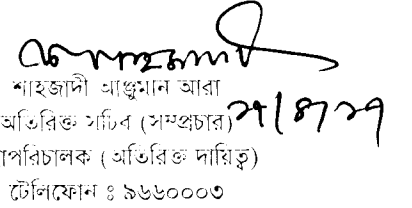 শাহজাদী আঞ্জুমান আরা
অতিরিক্ত সচিব (সম্প্রচার)
াপরিচালক (অতিরিক্ত দায়িত্ব)
টেলিফোন ঃ ৯৬৬০০০৩